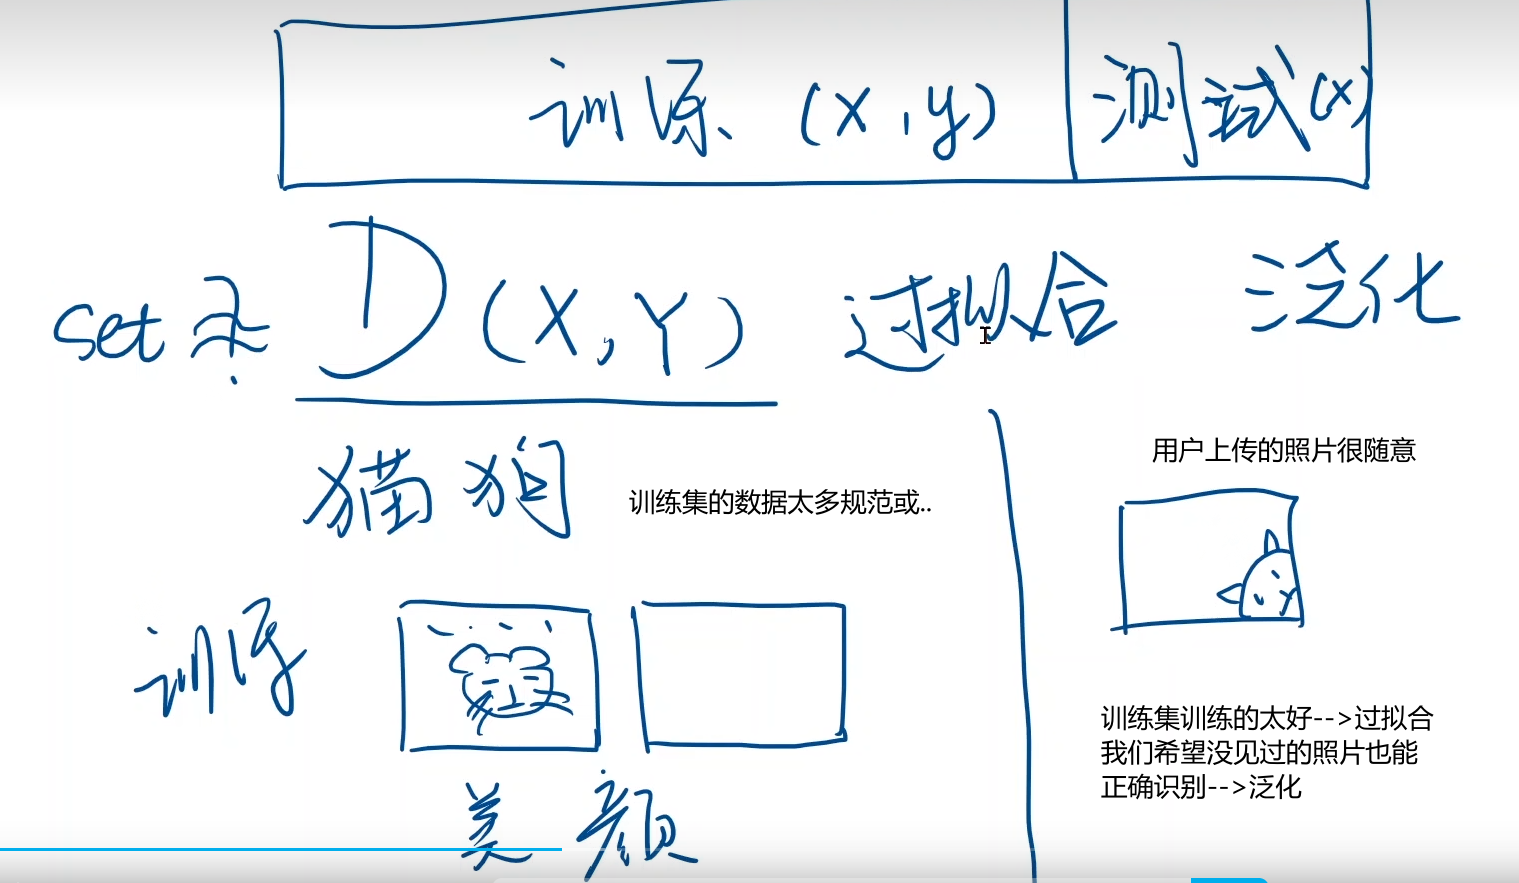 训练 (x,y) 测试(x)
set D(X,Y) 过拟合 泛化
猫 狗
训练集的数据太多规范或..
用户上传的照片很随意
训练
训练集训练的太好-->过拟合
我们希望没见过的照片也能
正确识别-->泛化
美颜